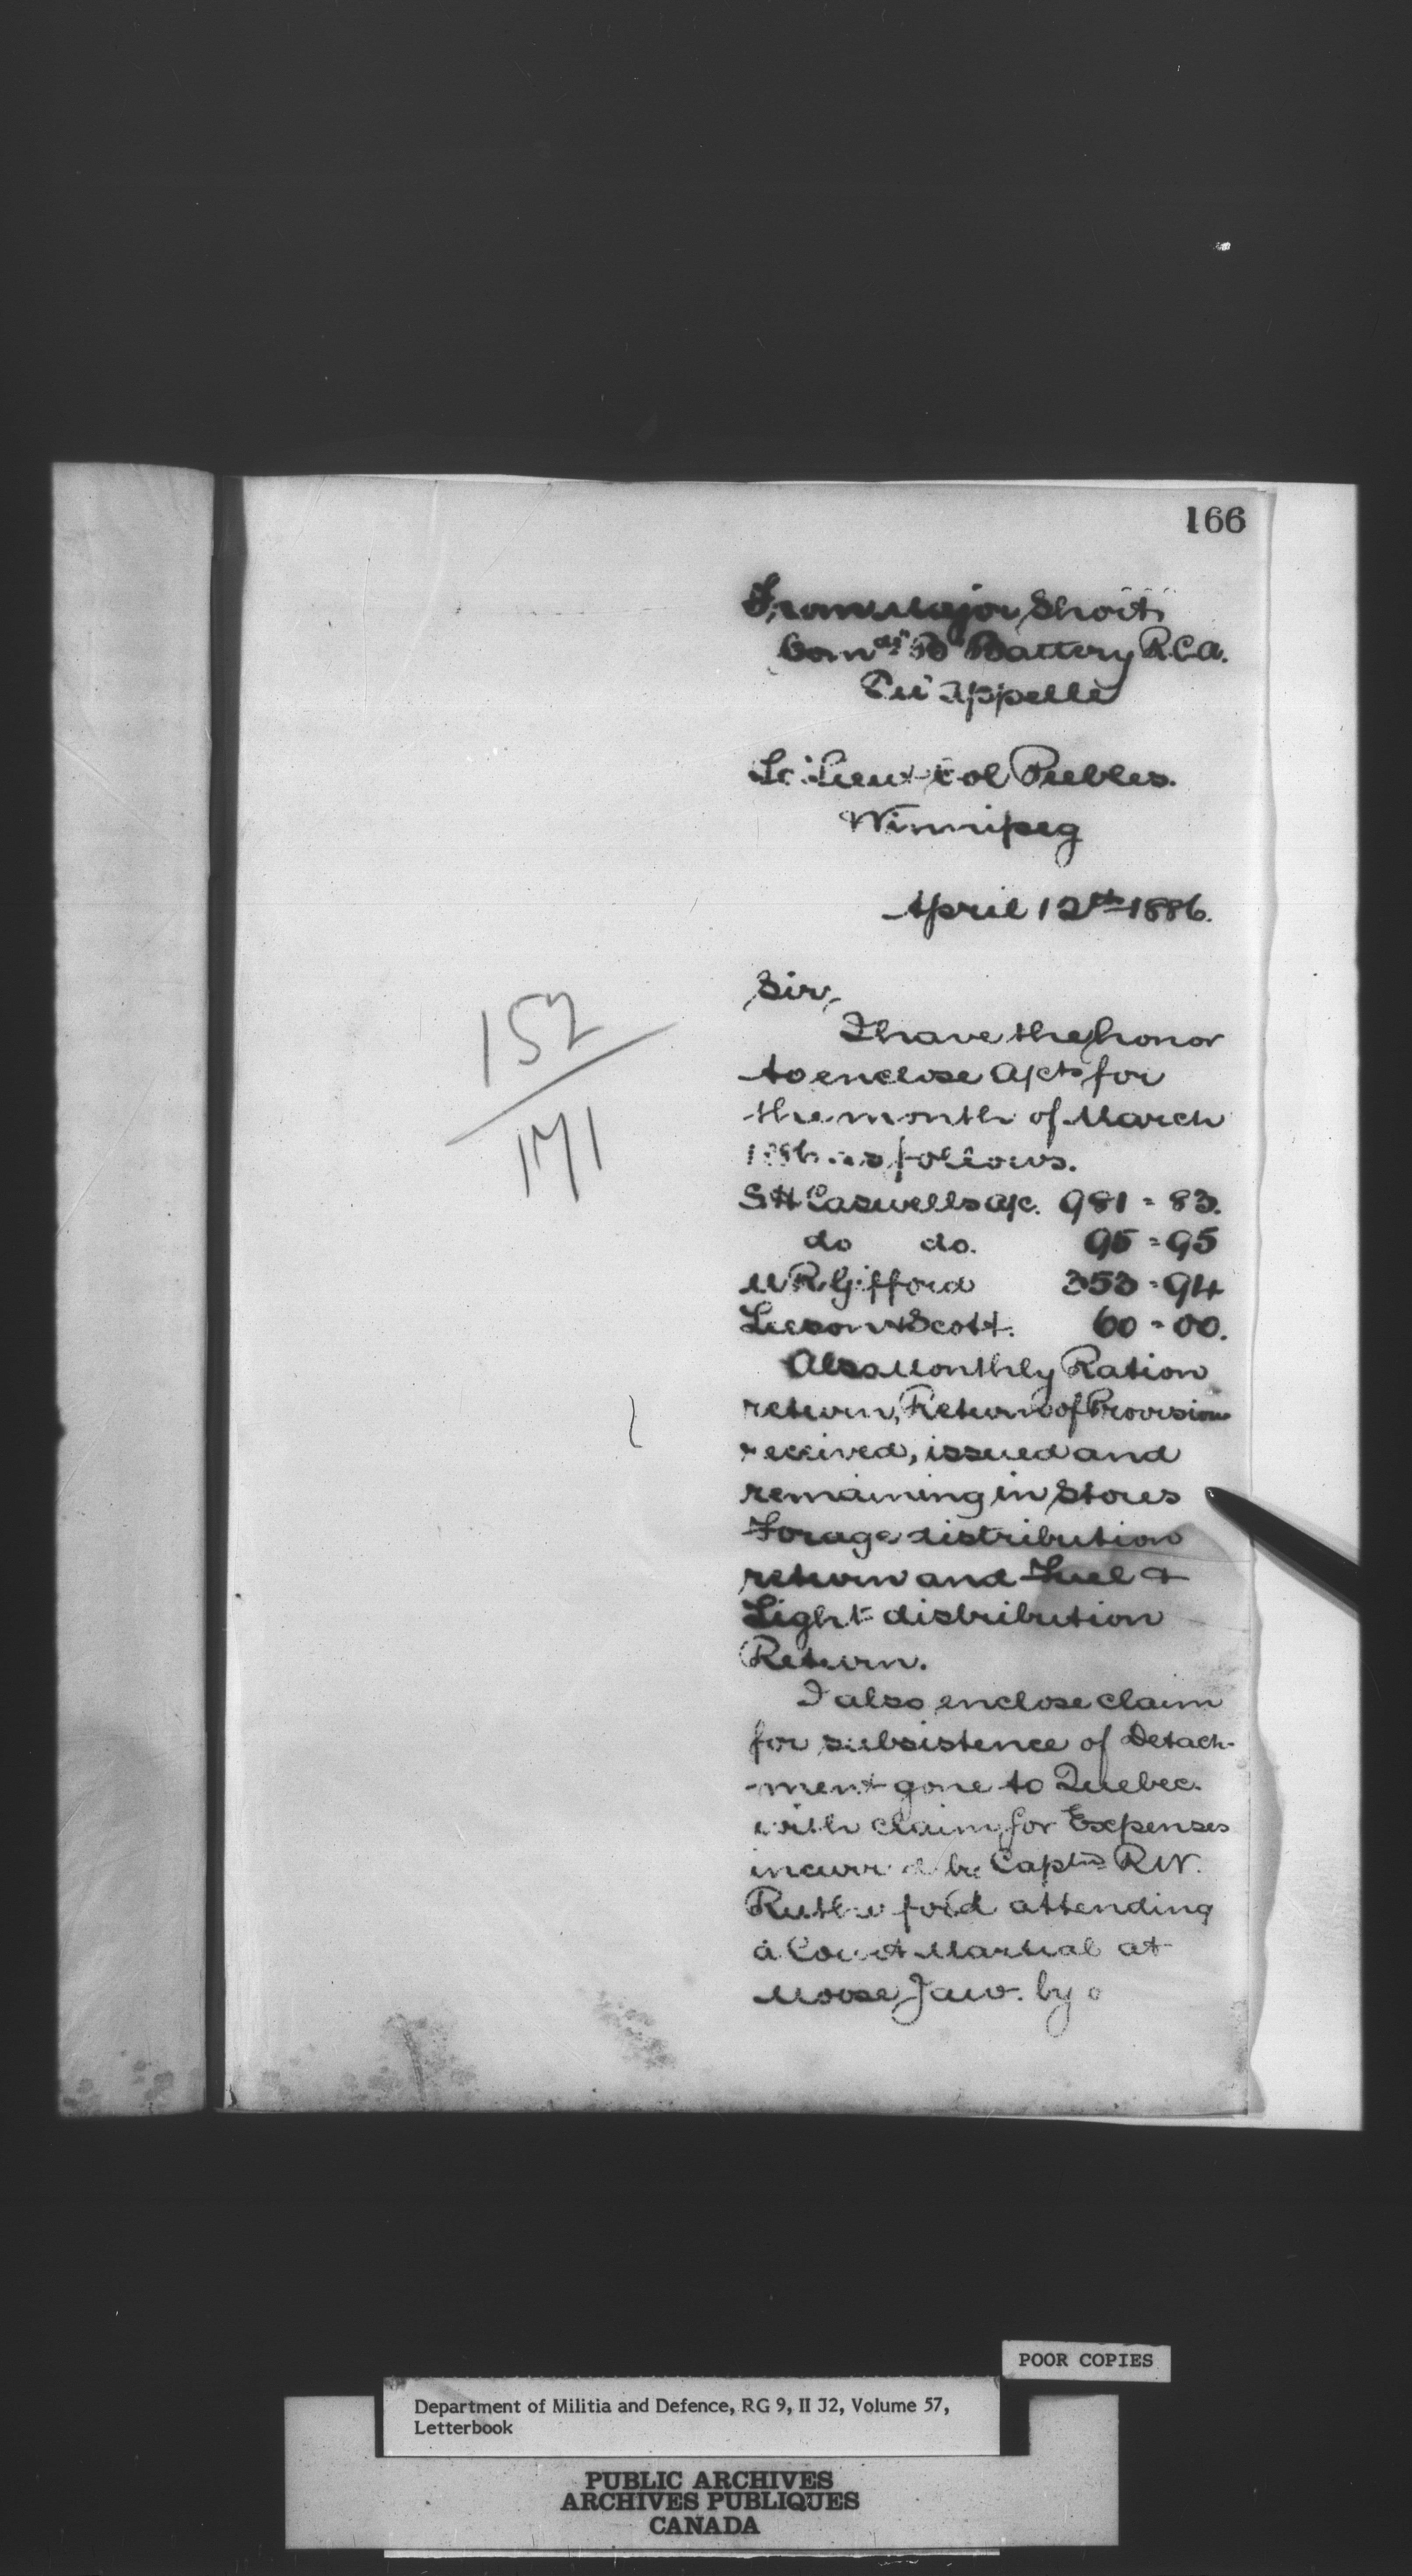 166
From Major Short
Com^dg "B" Battery R.C.A.
Qu'Appelle
To Lieut Col Peebles.
Winnipeg
April 12th 1886.
Sir,
I have the honor
to enclose a/cts for
the month of March
1886 as follows.
S.H. Caswells a/c. 981 = 83.
do do. 95 = 95
M R Gifford 353 = 94
Leeson & Scott. 60 = 00.
Also Monthly Ration
return, Return of Provisions
received, issued and
remaining in Stores
Forage distribution
return and Fuel &
Light distribution
Return.
I also enclose claim
for subsistence of Detach-
-ment gone to Quebec.
with claim for Expenses
incurred by Captn R W.
Rutherford attending
a Court Martial at
Moose Jaw. by
152
171
POOR COPIES
Department of Militia and Defence, RG 9, II J2, Volume 57,
Letterbook
PUBLIC ARCHIVES
ARCHIVES PUBLIQUES
CANADA